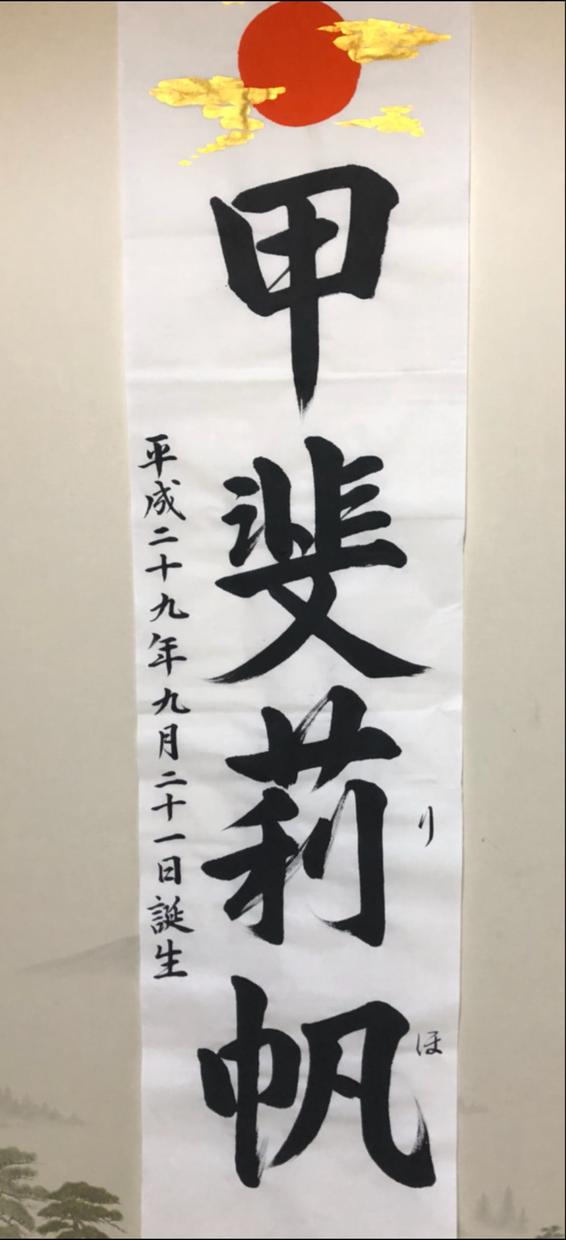 甲斐莉帆
り
ほ
平成二十九年九月二十一日誕生